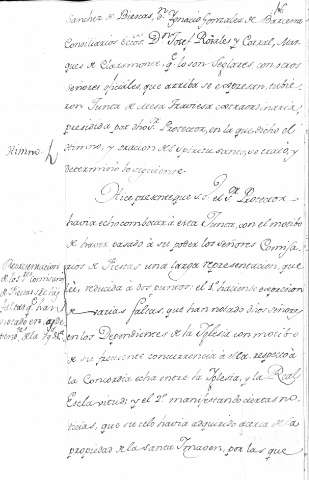 Sanchez de Dueñas, Dn Ignacio Gonzales de Barcena
Conciliarios Ecc.os Dn Josef Rosales y Corral, Mar-
ques de Claramonte, q.e lo son Seglares, con otros
señores oficiales, que arriba se expresan, tubie-
ron Junta de mesa Traviesa
presidida por dho S.r Protector, en la que dicho el
Himno, y oracion del Espiritu santo, se trató, y
determinó lo siguiente.
Himno
Hice presente que el S.r Protector
havia echo combocar a esta Junta, con el motibo
de haver pasado a su poder los señores Comisa-
rios de Fiestas una larga representacion, que
leí, reducida a dos puntos: el 1.o haciendo expresion
de varias faltas, que han notado dhos señores
en los Dependientes de la Iglesia con motibo
de su frequente concurrencia a ella, respecto a
la Concordia echa entre la Iglesia, y la Real
Esclavitud; y el 2.o manifestando ciertas no-
ticias, que su celo havia adquirido acerca de la
propiedad de la santa Imagen, por las que
Representacion
de los S.res Comisarios
de Fiestas de las
faltas q.e han
notado en
de la Igl.a